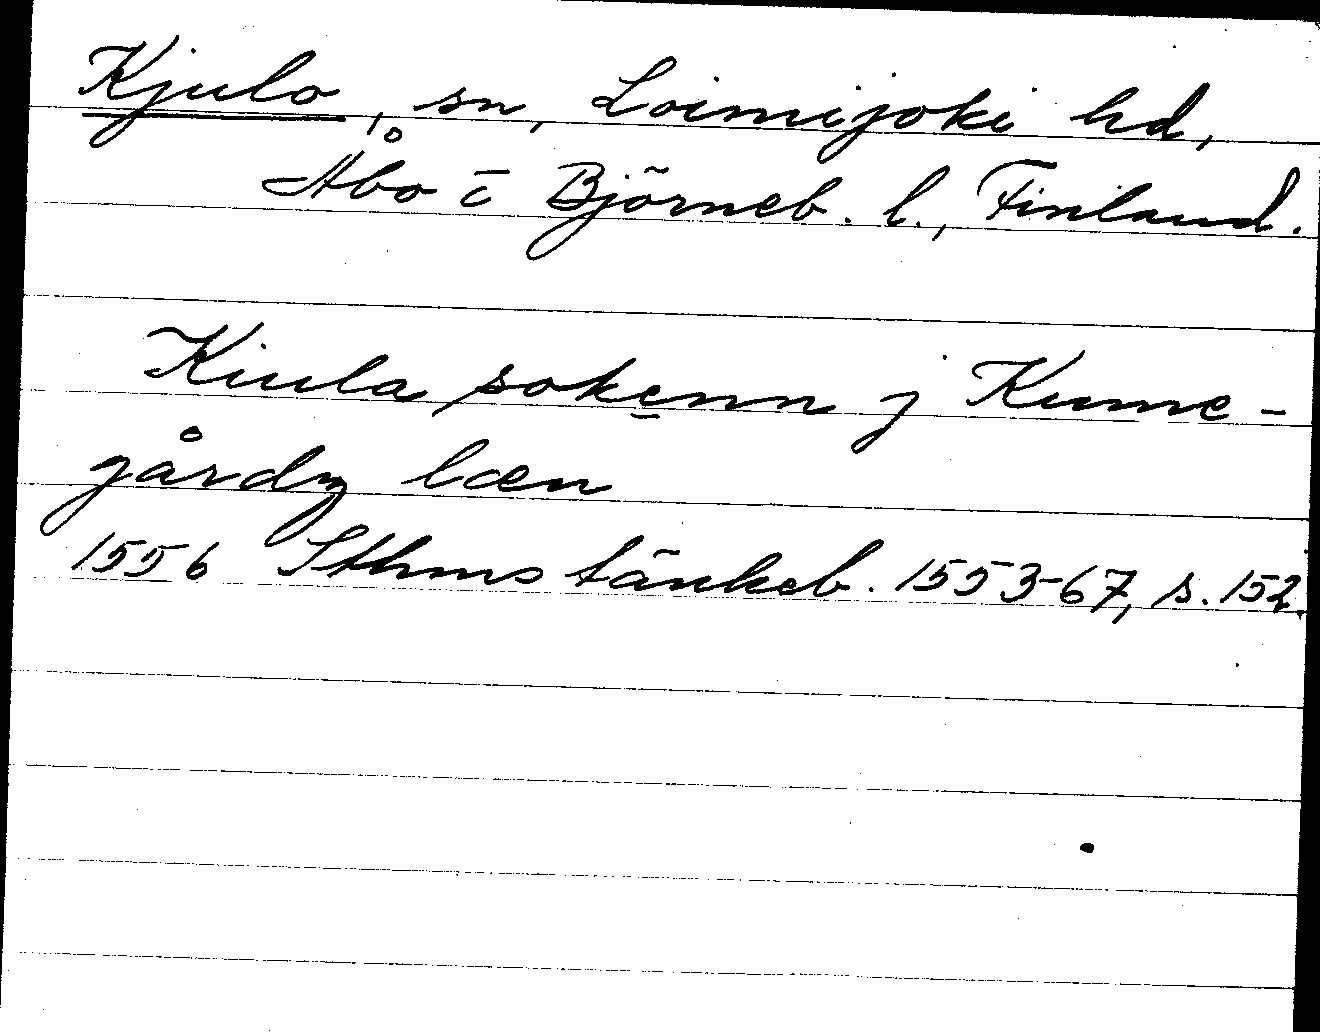 Kjulo, sn, Loimijoki hd,
Åbo c̄ Björneb. l., Finland.
Kiula sokenn j Kume-
gårdz læn
1556 Sthms tänkeb. 1553-67, s. 152.